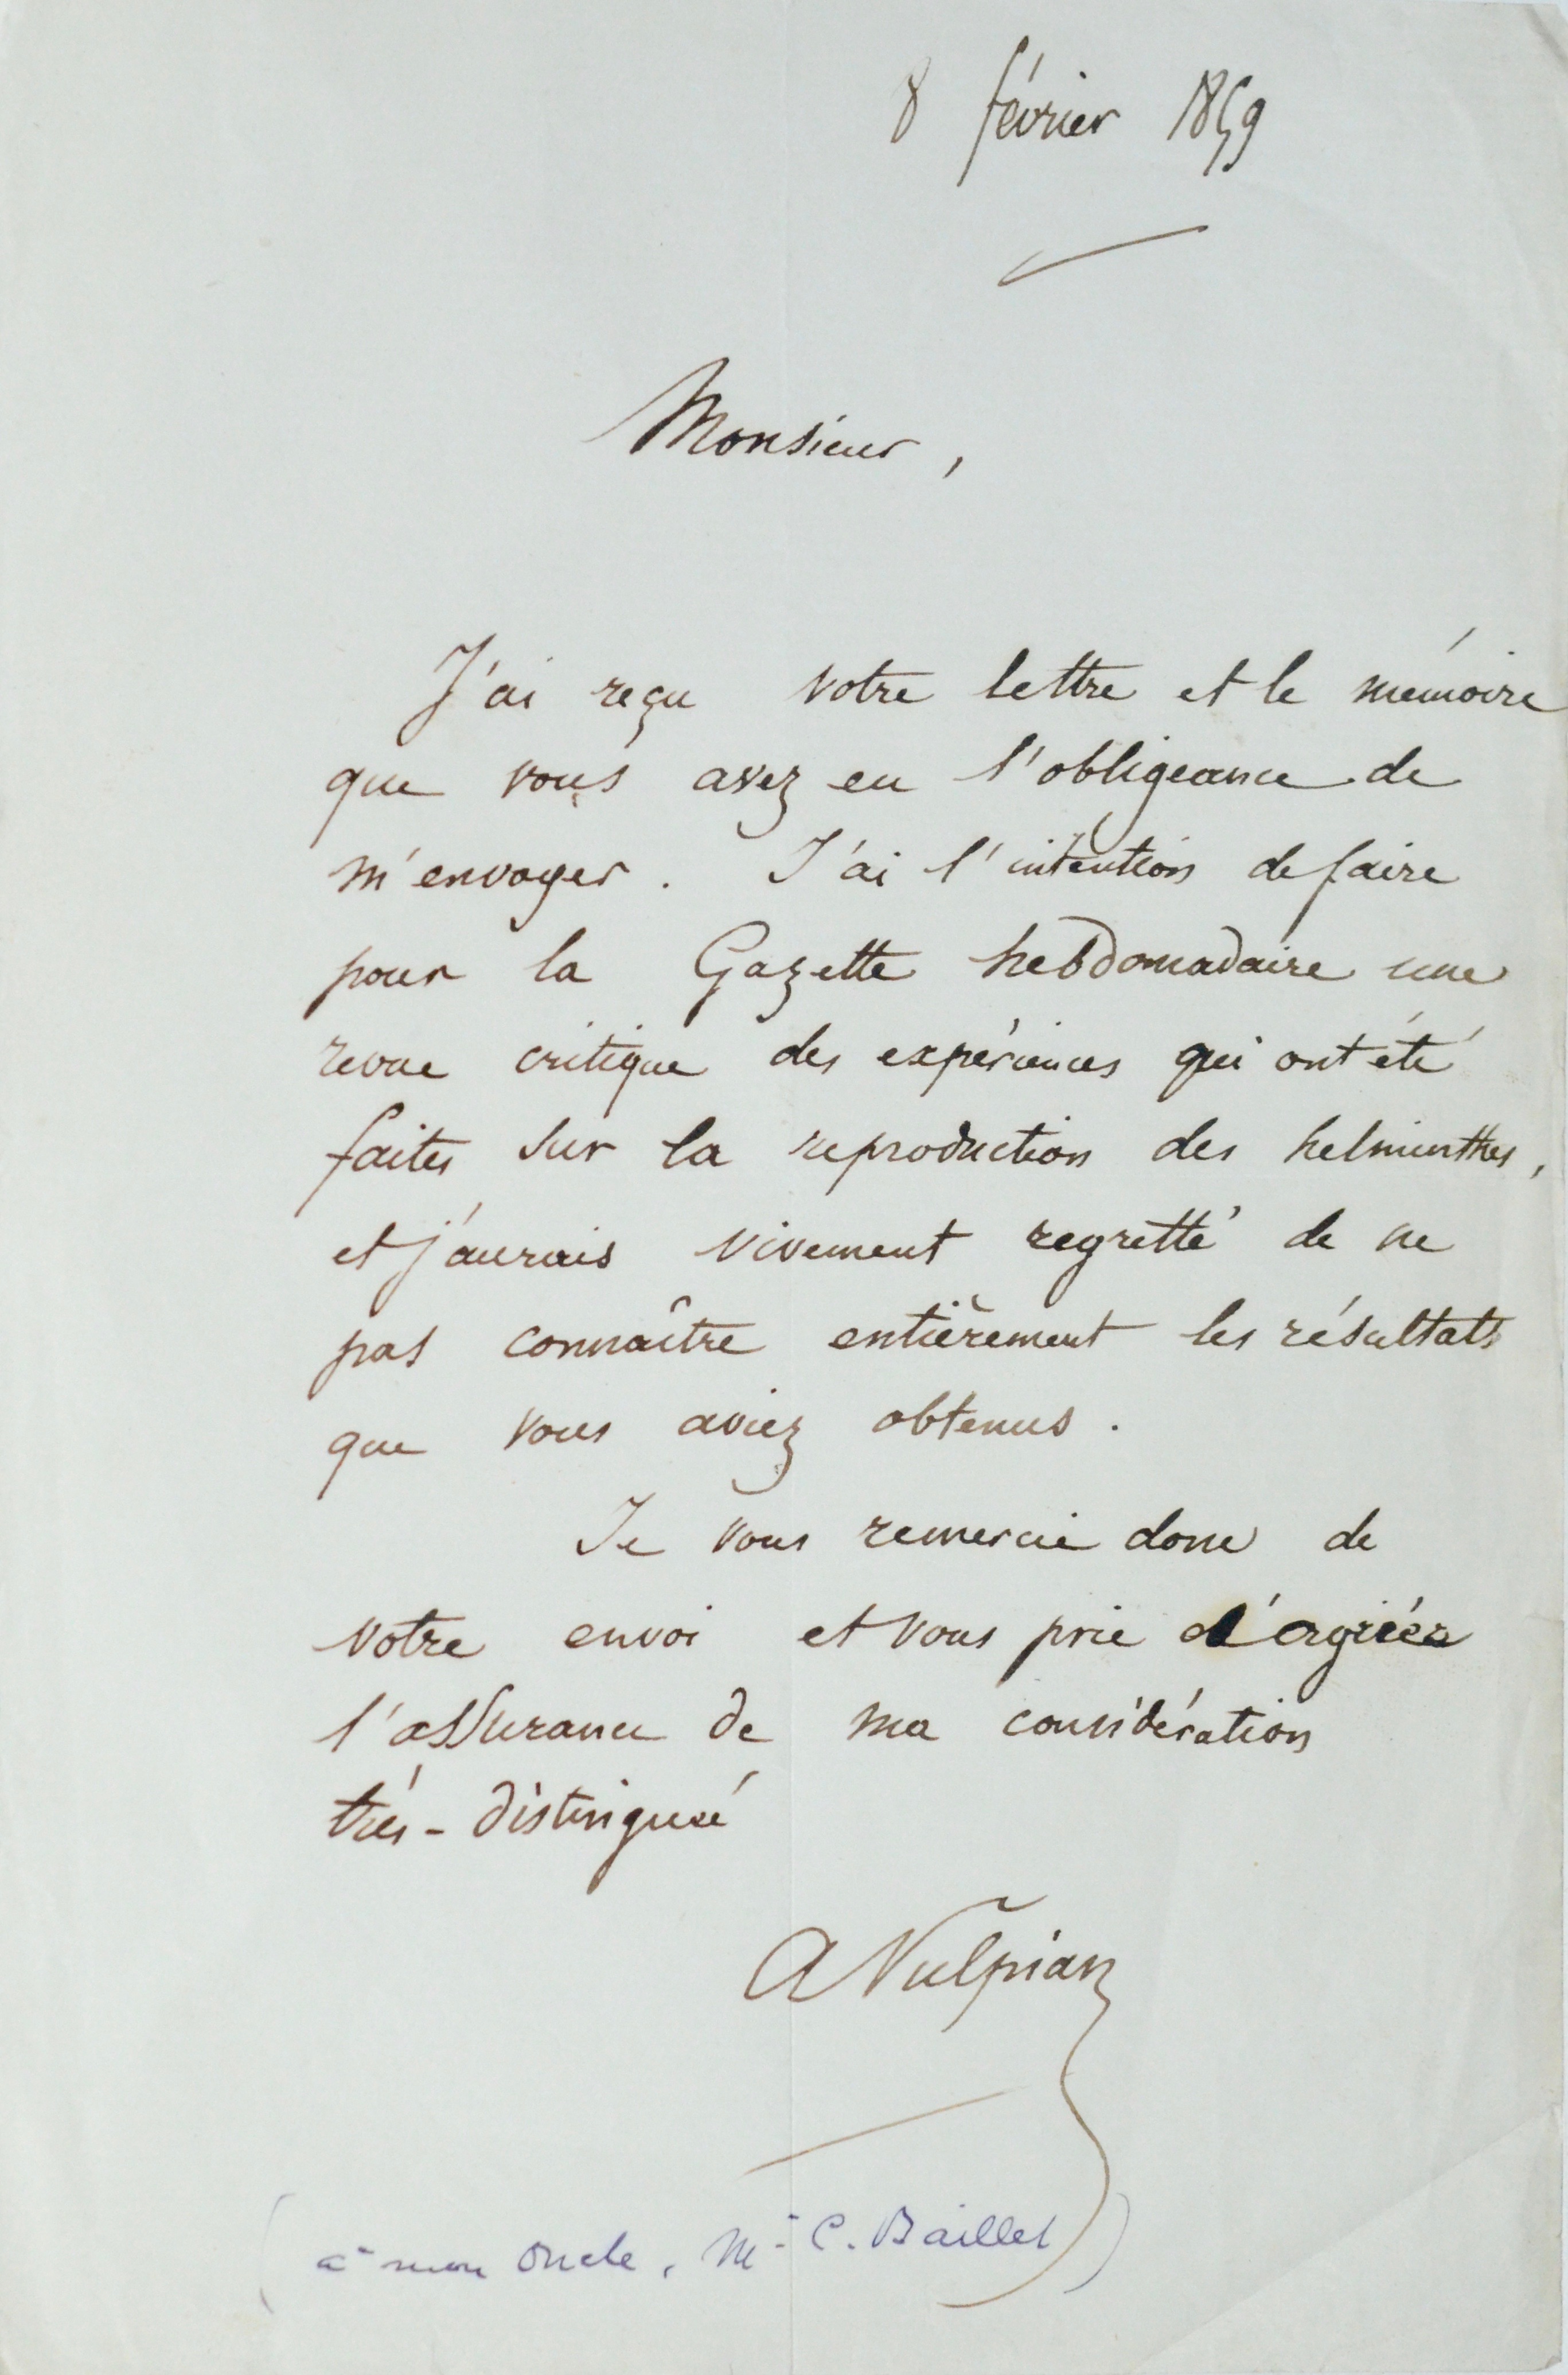 8 février 1859
Monsieur,
J'ai reçu votre lettre et le mémoire
que vous avez eu l'obligeance de
m'envoyer. J'ai l'intention de faire
pour la Gazette hebdomadaire une
revue critique des expériences qui ont été
faites sur la reproduction des helminthes,
et j'aurais vivement regretté de ne
pas connaître entièrement les résultats
que vous aviez obtenus.
Je vous remercie donc de
votre envoi et vous prie d'agréer
l'assurance de ma considération
très-distingué
A Vulpian
(à mon oncle, Mr C. Baillet)